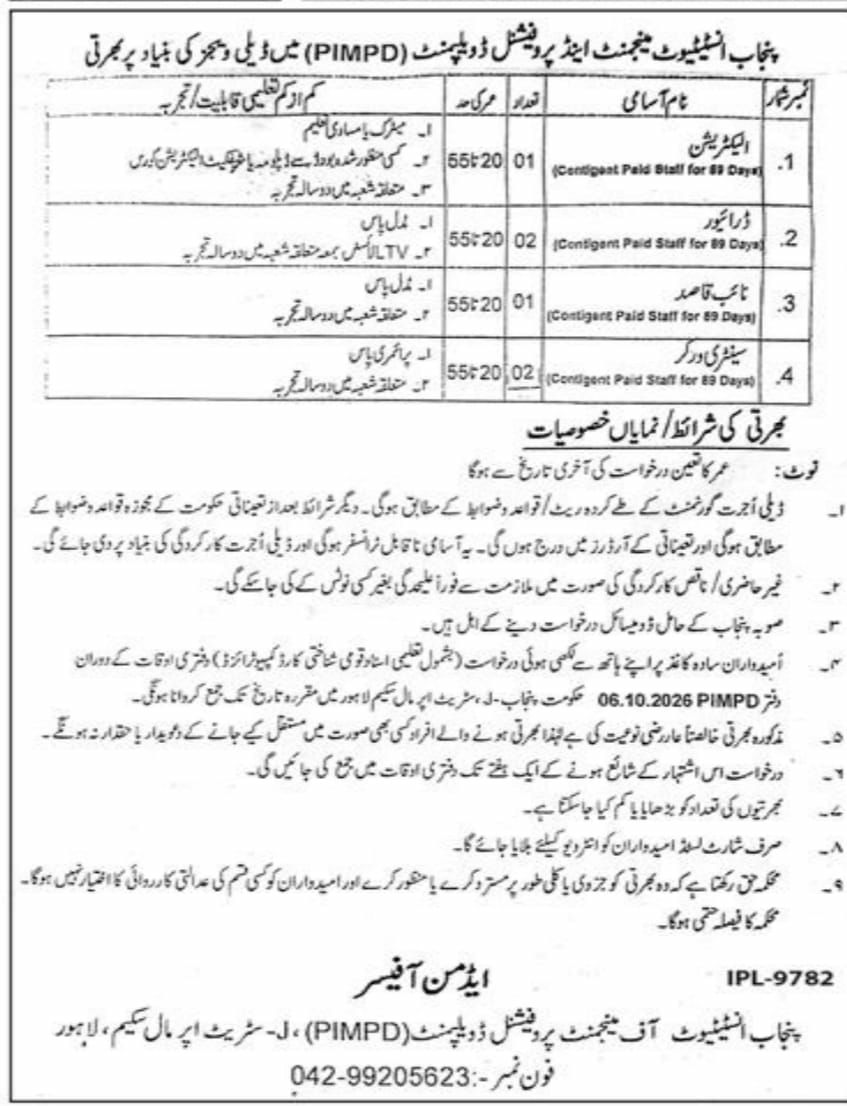 پنجاب انسٹیٹیوٹ مینجمنٹ اینڈ پروفیشنل ڈویلپمنٹ (PIMPD) میں ڈیلی ویجز کی بنیاد پر بھرتی
نمبر شمار نام آسامی تعداد عمر کی حد کم از کم تعلیمی قابلیت/تجربہ
1. الیکٹریشن (Contigent Paid Staff for 89 Days) 01 20تا55
۱۔ میٹرک یا مساوی تعلیم
۲۔ کسی منظور شدہ بورڈ سے ڈپلومہ یا سرٹیفکیٹ الیکٹریشن کورس
۳۔ متعلقہ شعبہ میں دو سالہ تجربہ
2. ڈرائیور (Contigent Paid Staff for 89 Days) 02 20تا55
۱۔ مڈل پاس
۲۔ LTV لائسنس بمعہ متعلقہ شعبہ میں دو سالہ تجربہ
3. نائب قاصد (Contigent Paid Staff for 89 Days) 01 20تا55
۱۔ مڈل پاس
۲۔ متعلقہ شعبہ میں دو سالہ تجربہ
4. سینٹری ورکر (Contigent Paid Staff for 89 Days) 02 20تا55
۱۔ پرائمری پاس
۲۔ متعلقہ شعبہ میں دو سالہ تجربہ
بھرتی کی شرائط/نمایاں خصوصیات
نوٹ: عمر کا تعین درخواست کی آخری تاریخ سے ہوگا
۱۔ ڈیلی اُجرت گورنمنٹ کے طے کردہ ریٹ/قواعد وضوابط کے مطابق ہوگی۔ دیگر شرائط بعد از تعیناتی حکومت کے مجوزہ قواعد وضوابط کے
مطابق ہوگی اور تعیناتی کے آرڈرز میں درج ہوں گی۔ یہ آسامی ناقابل ٹرانسفر ہوگی اور ڈیلی اُجرت کارکردگی کی بنیاد پر دی جائے گی۔
۲۔ غیر حاضری/ناقص کارکردگی کی صورت میں ملازمت سے فوراً علیحدگی بغیر کسی نوٹس کے کی جاسکے گی۔
۳۔ صوبہ پنجاب کے حامل ڈومیسائل درخواست دینے کے اہل ہیں۔
۴۔ اُمیدواران سادہ کاغذ پر اپنے ہاتھ سے لکھی ہوئی درخواست (بشمول تعلیمی اسناد قومی شناختی کارڈ کمپیوٹرائزڈ) دفتری اوقات کے دوران
دفتر PIMPD 06.10.2026 حکومت پنجاب J-، سٹریٹ اپر مال سکیم لاہور میں مقررہ تاریخ تک جمع کروانا ہونگی۔
۵۔ مذکورہ بھرتی خالصتاً عارضی نوعیت کی ہے لہٰذا بھرتی ہونے والے افراد کسی بھی صورت میں مستقل کیے جانے کے دعویدار یا حقدار نہ ہونگے۔
۶۔ درخواست اس اشتہار کے شائع ہونے کے ایک ہفتے تک دفتری اوقات میں جمع کی جائیں گی۔
۷۔ بھرتیوں کی تعداد کو بڑھایا یا کم کیا جاسکتا ہے۔
۸۔ صرف شارٹ لسٹڈ امیدواران کو انٹرویو کیلئے بلایا جائے گا۔
۹۔ محکمہ حق رکھتا ہے کہ وہ بھرتی کو جزوی یا کلی طور پر مسترد کرے یا منظور کرے اور امیدواران کو کسی قسم کی عدالتی کارروائی کا اختیار نہیں ہوگا۔
محکمہ کا فیصلہ حتمی ہوگا۔
IPL-9782
ایڈمن آفیسر
پنجاب انسٹیٹیوٹ آف مینجمنٹ پروفیشنل ڈویلپمنٹ (PIMPD)، J- سٹریٹ اپر مال سکیم، لاہور
فون نمبر:- 042-99205623